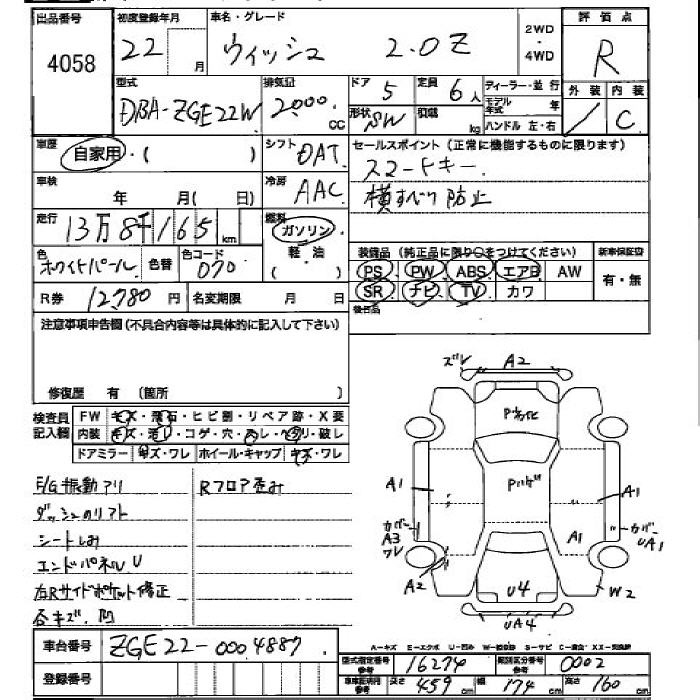 出品番号 初度登録年月 車名・グレード 2WD・4WD 評価点
4058 22 月 ウィッシュ 2.0Z R
型式 排気量 ドア 定員 ディーラー・並行 外装 内装
DBA-ZGE22W 2000 CC 5 6人 モデル年式 年 / C
形状 SW 積載 kg ハンドル 左・右
車歴 自家用・( ) シフト OAT セールスポイント (正常に機能するものに限ります)
車検 年 月( 日) 冷房 AAC スマートキー
横すべり防止
走行 13万8千165 km 燃料 ガソリン 軽油 ( )
色 ホワイトパール 色替 色コード 070
装備品 (純正品に限り○をつけてください) 新車保証書
PS PW ABS エアB AW 有・無
SR ナビ TV カワ
R券 12780 円 名変期限 月 日 後日品
注意事項申告欄 (不具合内容等は具体的に記入して下さい)
修復歴 有 (箇所 )
検査員記入欄
FW キズ・飛石・ヒビ割・リペア跡・X要
内装 キズ・汚レ・コゲ・穴・スレ・ヘタリ・破レ
ドアミラー キズ・ワレ ホイール・キャップ キズ・ワレ
F/G振動アリ Rフロア歪み
ダッシュのリフト
シートしみ
エンドパネルU
右Rサイドポケット修正
各キズ、凹
ズレ A2
A1 A1
カバー A3 ワレ A1 カバー UA1
A2 U4 W2
UA4
A-キズ E-エクボ U-凹み W-補修跡 S-サビ C-腐食 XX-交換跡
車台番号 ZGE22-0004887
登録番号
型式指定番号 16274 類別区分番号 0002
車庫証明用参考 長さ 459 cm 幅 174 cm 高さ 160 cm